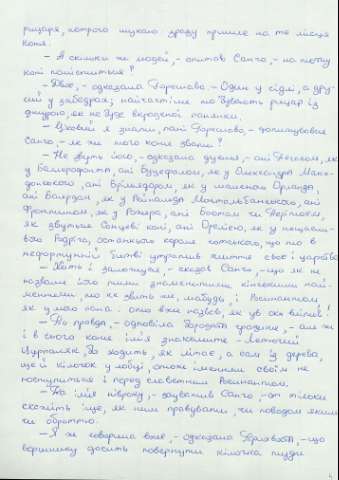 рицаря, котрого шукаю зразу пришле на те місце
коня.
— А скільки ж людей, - спитав Санчо, - на тому
коні поміститься?
— Двоє, - одказала Горопаха. - Один у сідлі, а дру-
гий у забедрах; найчастіше то бувають рицар із
джурою, як не буде вкраденої панянки.
— Цікавий я знати, пані Горопахо, - допитувався
Санчо, - як же того коня звати?
— Не звуть його, - одказала дуенья, - ані Пегасом, як
у Беллерофонта, ані Буцефалом, як у Олександра Маке-
донського, ані Брільядором, як у шаленого Орланда,
ані Баярдом, як у Рейнальда Монтальбанського, ані
Фронтином, як у Рогера, ані Боотом чи Перітоєм,
як звуться Сонцеві коні, ані Орелією, як у нещасли-
вого Родріго, останнього короля готського, що то в
нефортунній битві утратив життя своє і царство.
— Ладен і заложитися, - сказав Санчо, - що як не
назвали його тими знаменитими кінськими най-
меннями, то не звуть же, мабуть, і Росинантом,
як у мого пана: отой вже назвав, як ув око вліпив!
— То правда, - одмовила бородата графиня, - але ж
і в сього коня ім'я знамените - Летючий
Цурпалик, бо ходить, як літає, а сам із дерева,
ще й кілочок у лобі, отож іменням своїм не
поступиться і перед славетним Росинантом.
— На ім'я нівроку, - зауважив Санчо, - от тільки
скажіть іще, як ним правувати, чи поводом яким
чи оброттю.
— Я ж говорила вже, - одказала Горопаха, - що
вершнику досить повернути кілочка туди